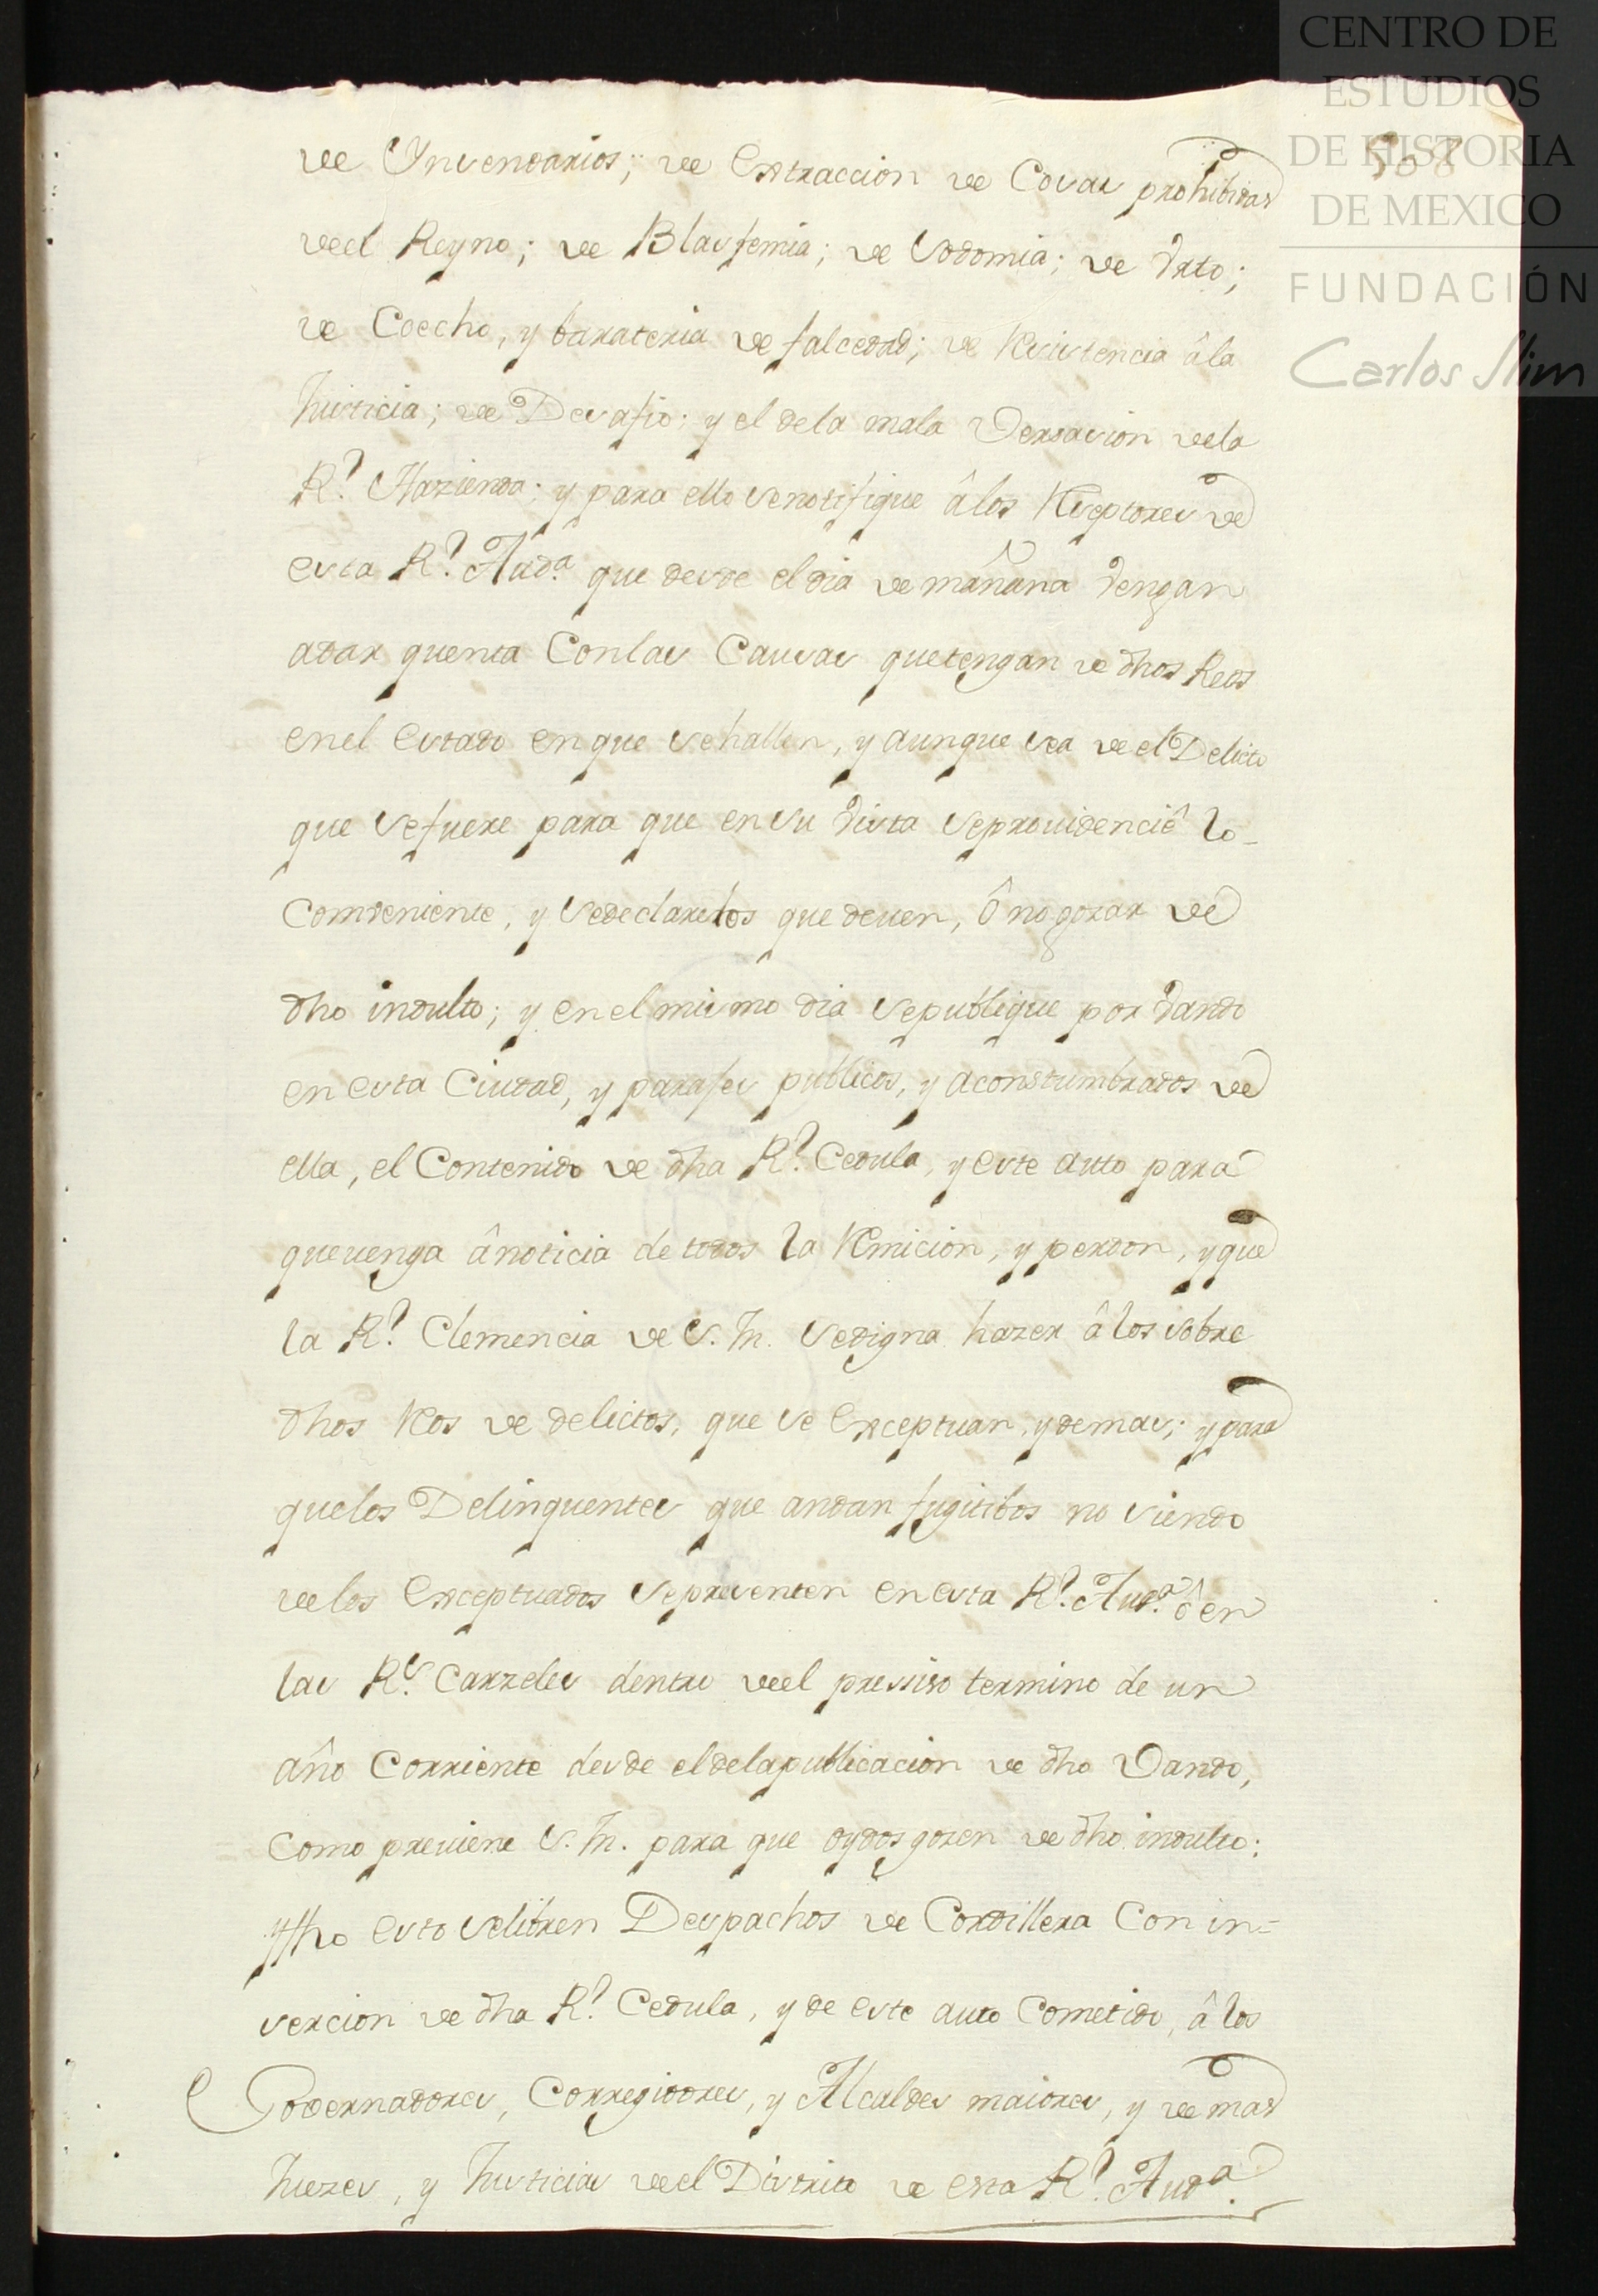 CENTRO DE
ESTUDIOS
DE HISTORIA
DE MEXICO
FUNDACIÓN
Carlos Slim
508
de Yncendarios; de Extraccion de Cosas prohibidas
de el Reyno; de Blasfemia; de Sodomia; de
de Coecho, y barateria de falcedad; de Resistencia â la
Justicia; de Desafio; y el de la mala Versasion de la
Rl. Hazienda; y para ello se notifique â los Reseptores de
esta Rl. Auda. que desde el dia de mañana vengan
a dar quenta Con las Causas que tengan de dhos Reos
en el estado en que se hallen, y aunque sea de el Delicto
que se fuere para que en su vista se providenciê lo-
Comveniente, y se declare los que deven, ô no gozar de
dho indulto; y en el mismo dia se publique por vando
en esta Ciudad, y parajes publicos, y aconstumbrados de
ella, el Contenido de dha Rl. Cedula, y este auto para
que venga â noticia de todos la Remicion, y perdon, y que
la Rl. Clemencia de S. M. se digna hazer â los sobre
dhos Reos de delictos, que se exceptuan, y demas; y para
que los Delinquentes que andan fugitibos no siendo
de los exceptuados se presenten en esta Rl. Auda. ô en
las Rs. Carzeles dentro del pressiso termino de un
año Corriente desde el de la publicacion de dho Vando,
Como previene S. M. para que oydos gozen de dho indulto;
y fho esto se libren Despachos de Cordillera Con in=
sercion de dha Rl. Cedula, y de este auto Cometido, â los
Governadores, Corregidores, y Alcaldes maiores, y demas
Juezes, y Justicias de el Distrito de esta Rl. Auda.